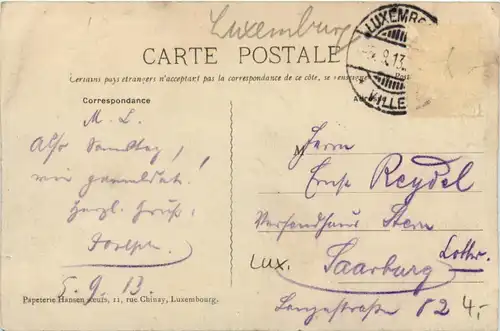 Luxemburg
LUXEMBO
8.13
VILLE
CARTE POSTALE
Certains pays étrangers n'acceptant pas la correspondance de ce côté, se renseigner Post
Correspondance
M. L.
Also Samstag,
wie gemeldet!
Herzl. Gruß,
Joseph.
5.9.13.
M
Herrn
Ernst Reydel
Versandhaus Stern
Saarburg Lothr.
Langestraße 82
Lux.
4,-
Papeterie Hansen Neufs, 11, rue Chinay, Luxembourg.